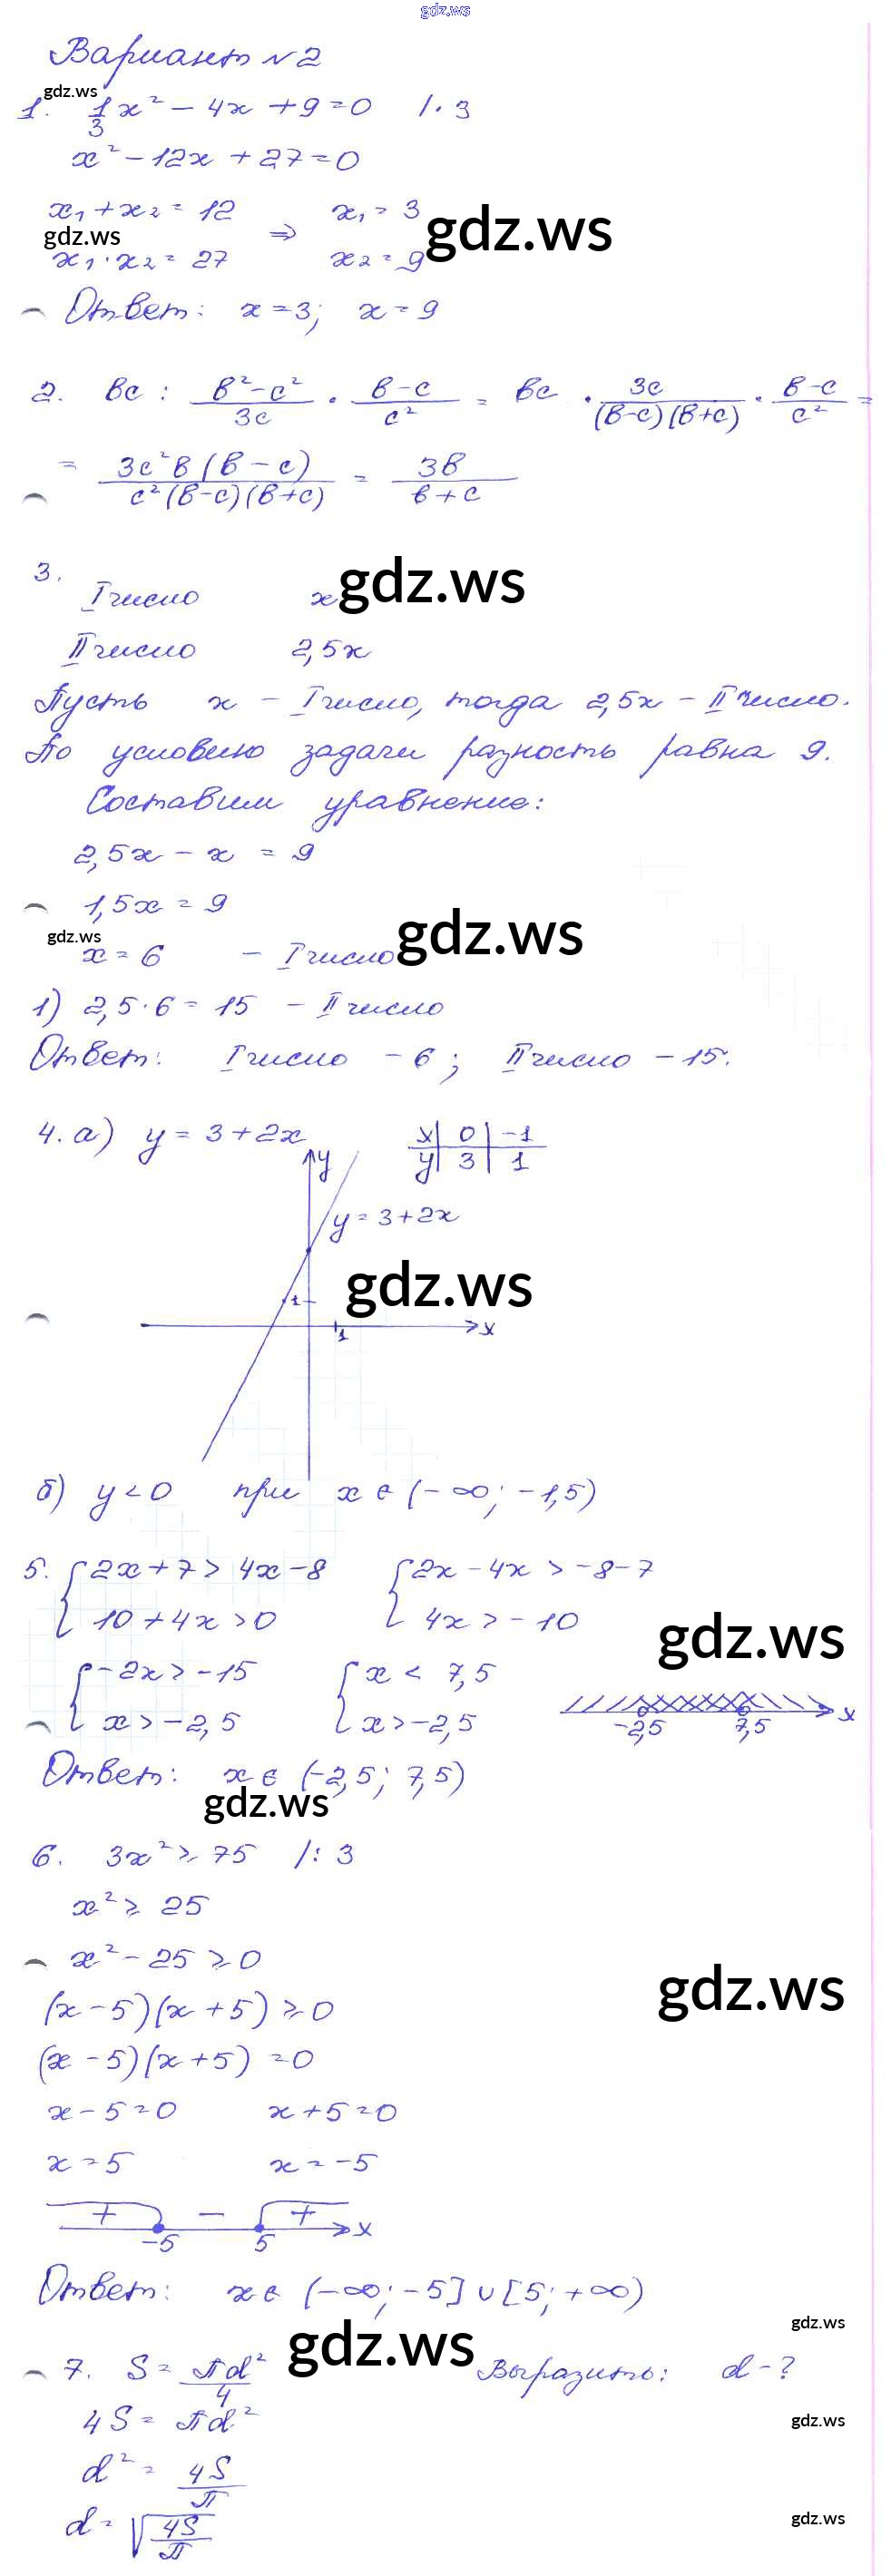 gdz.ws
Вариант №2
gdz.ws
1. 1/3 x² − 4x + 9 = 0 /· 3
x² − 12x + 27 = 0
x₁ + x₂ = 12 ⇒ x₁ = 3
gdz.ws gdz.ws
x₁ · x₂ = 27 x₂ = 9
Ответ: x = 3; x = 9
2. bc : (b² − c²)/3c · (b − c)/c² = bc · 3c/((b − c)(b + c)) · (b − c)/c² =
= 3c²b(b − c)/(c²(b − c)(b + c)) = 3b/(b + c)
3.
I число x gdz.ws
II число 2,5x
Пусть x − I число, тогда 2,5x − II число.
По условию задачи разность равна 9.
Составим уравнение:
2,5x − x = 9
1,5x = 9
gdz.ws gdz.ws
x = 6 − I число
1) 2,5 · 6 = 15 − II число
Ответ: I число − 6; II число − 15.
4. а) y = 3 + 2x x | 0 | −1
y | 3 | 1
y
y = 3 + 2x
gdz.ws
1
x
1
б) y < 0 при x ∈ (−∞; −1,5)
5. { 2x + 7 > 4x − 8 { 2x − 4x > −8 − 7
10 + 4x > 0 4x > −10
gdz.ws
{ −2x > −15 { x < 7,5
x > −2,5 x > −2,5 −2,5 7,5 x
Ответ: x ∈ (−2,5; 7,5)
gdz.ws
6. 3x² ≥ 75 /: 3
x² ≥ 25
x² − 25 ≥ 0
gdz.ws
(x − 5)(x + 5) ≥ 0
(x − 5)(x + 5) = 0
x − 5 = 0 x + 5 = 0
x = 5 x = −5
+ − + x
−5 5
Ответ: x ∈ (−∞; −5] ∪ [5; +∞)
gdz.ws
gdz.ws
7. S = πd²/4 Выразить: d − ?
4S = πd²
gdz.ws
d² = 4S/π
d = √(4S/π)
gdz.ws